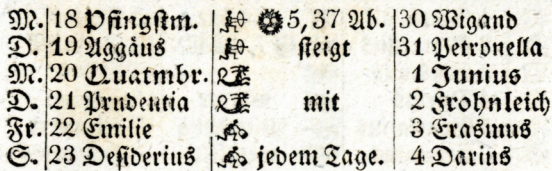 M. 18 Pfingstm. 5, 37 Ab. 30 Wigand
D. 19 Aggäus steigt 31 Petronella
M. 20 Quatmbr. 1 Junius
D. 21 Prudentia mit 2 Frohnleich
Fr. 22 Emilie 3 Erasmus
S. 23 Desiderius jedem Tage. 4 Darius